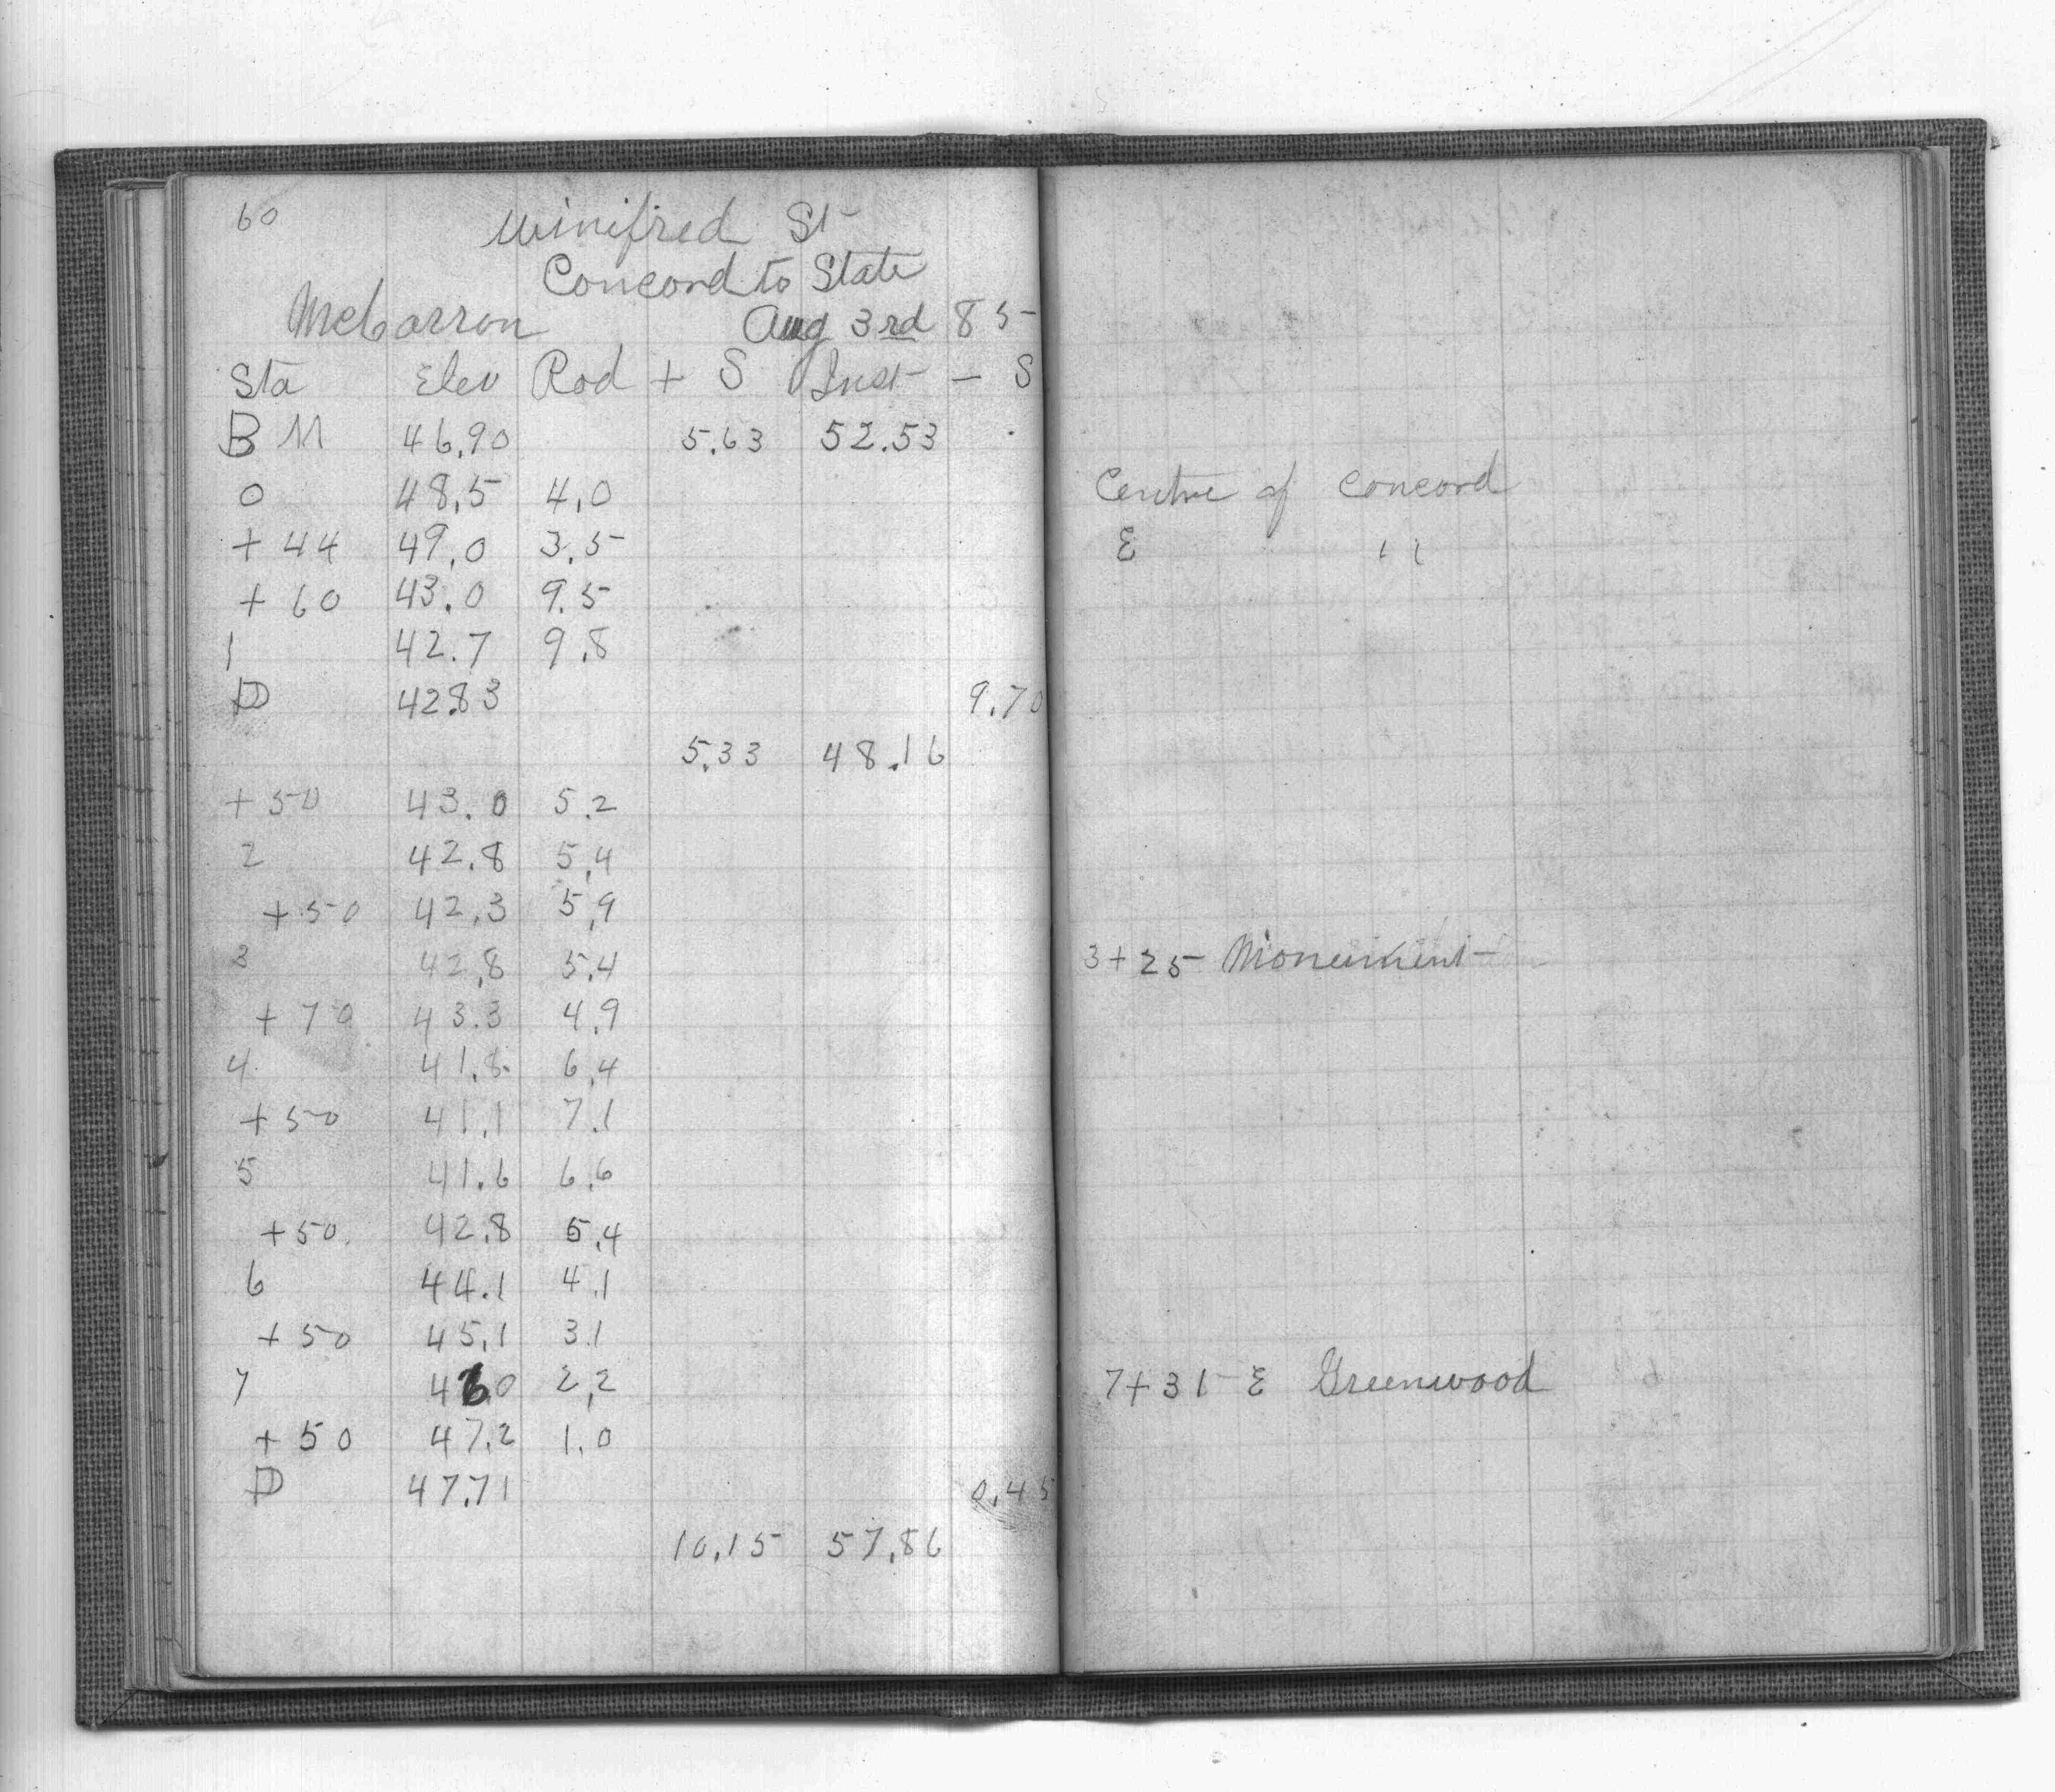 60
Winifred St
Concord to State
McCarron Aug 3rd 85
Sta Elev Rod + S Inst - S
B M 46.90 5.63 52.53
0 48.5 4.0 Centre of Concord
+ 44 49.0 3.5 E "
+ 60 43.0 9.5
1 42.7 9.8
D 42.83 9.70
5.33 48.16
+ 50 43.0 5.2
2 42.8 5.4
+ 50 42.3 5.9
3 42.8 5.4 3+25 Monument
+ 70 43.3 4.9
4 41.8 6.4
+ 50 41.1 7.1
5 41.6 6.6
+ 50 42.8 5.4
6 44.1 4.1
+ 50 45.1 3.1
7 46.0 2.2 7+31 E Greenwood
+ 50 47.2 1.0
D 47.71 0.45
10.15 57.86